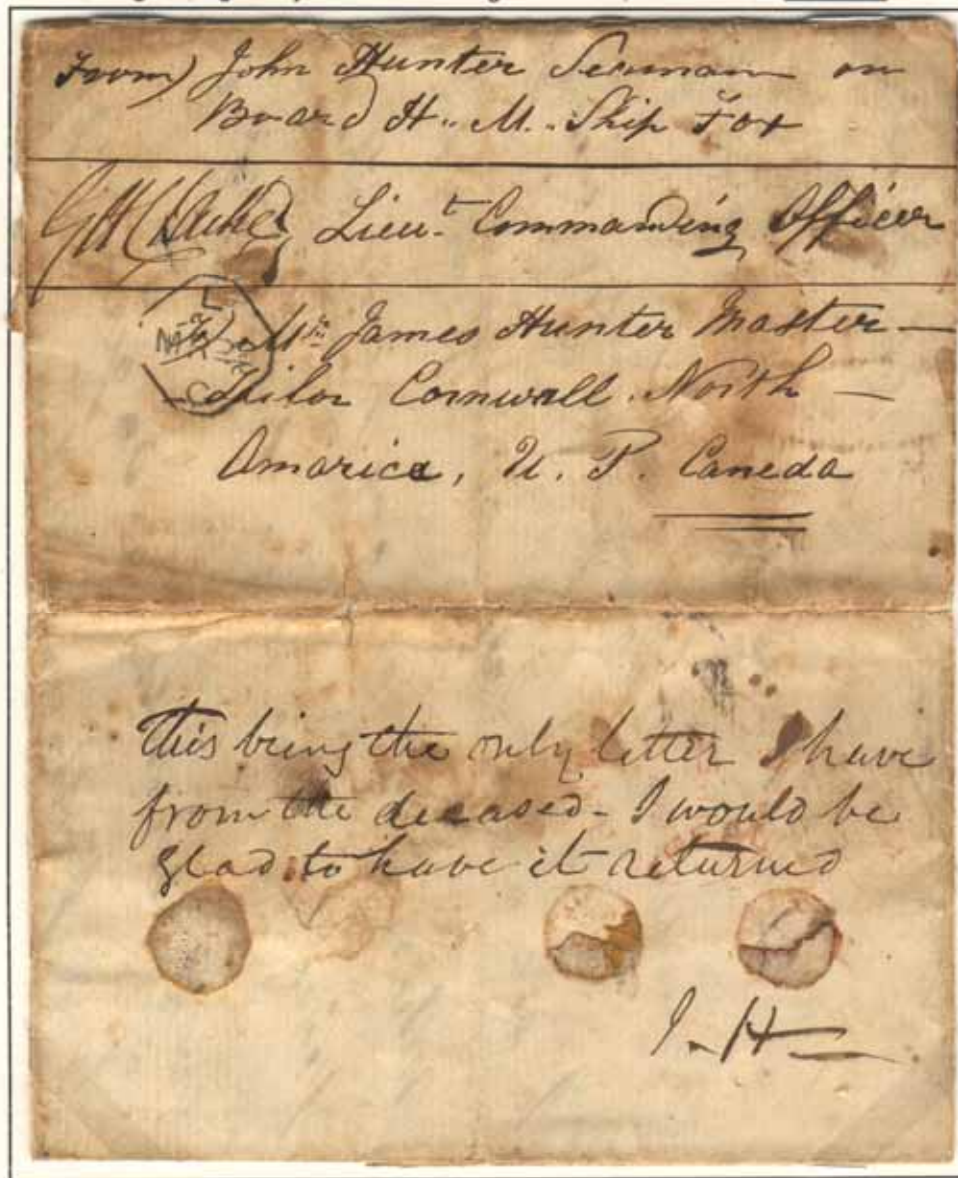 From John Hunter Seaman on
Board H.. M.. Ship Fox
GH Lieut. Commanding Officer
Mr. James Hunter Master —
Tailor Cornwall. North —
Amarica, U. P. Caneda
This being the only letter I have
from the deceased - I would be
glad to have it returned
J. H